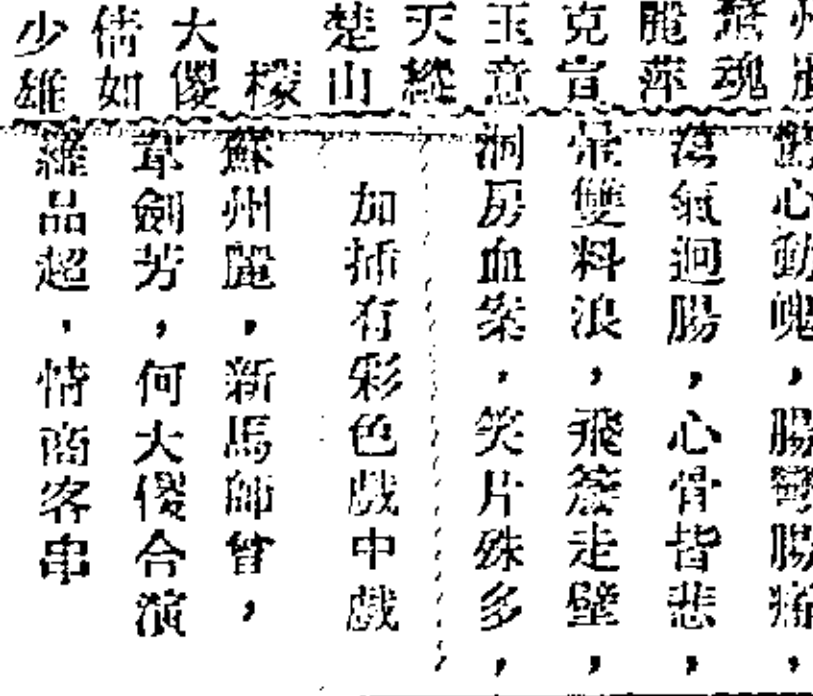 驚魂
麗萍
克宣
玉意
天縱
楚山
大傻
倩如
少雄
心動魄,腸彎腸痛,
蕩氣迴腸,心骨皆悲,
雙料浪,飛簷走壁,
洞房血案.笑片殊多,
加插有彩色戲中戲
蘇州麗,新馬師曾,
劍芳,何大傻合演
羅品超.情商客串